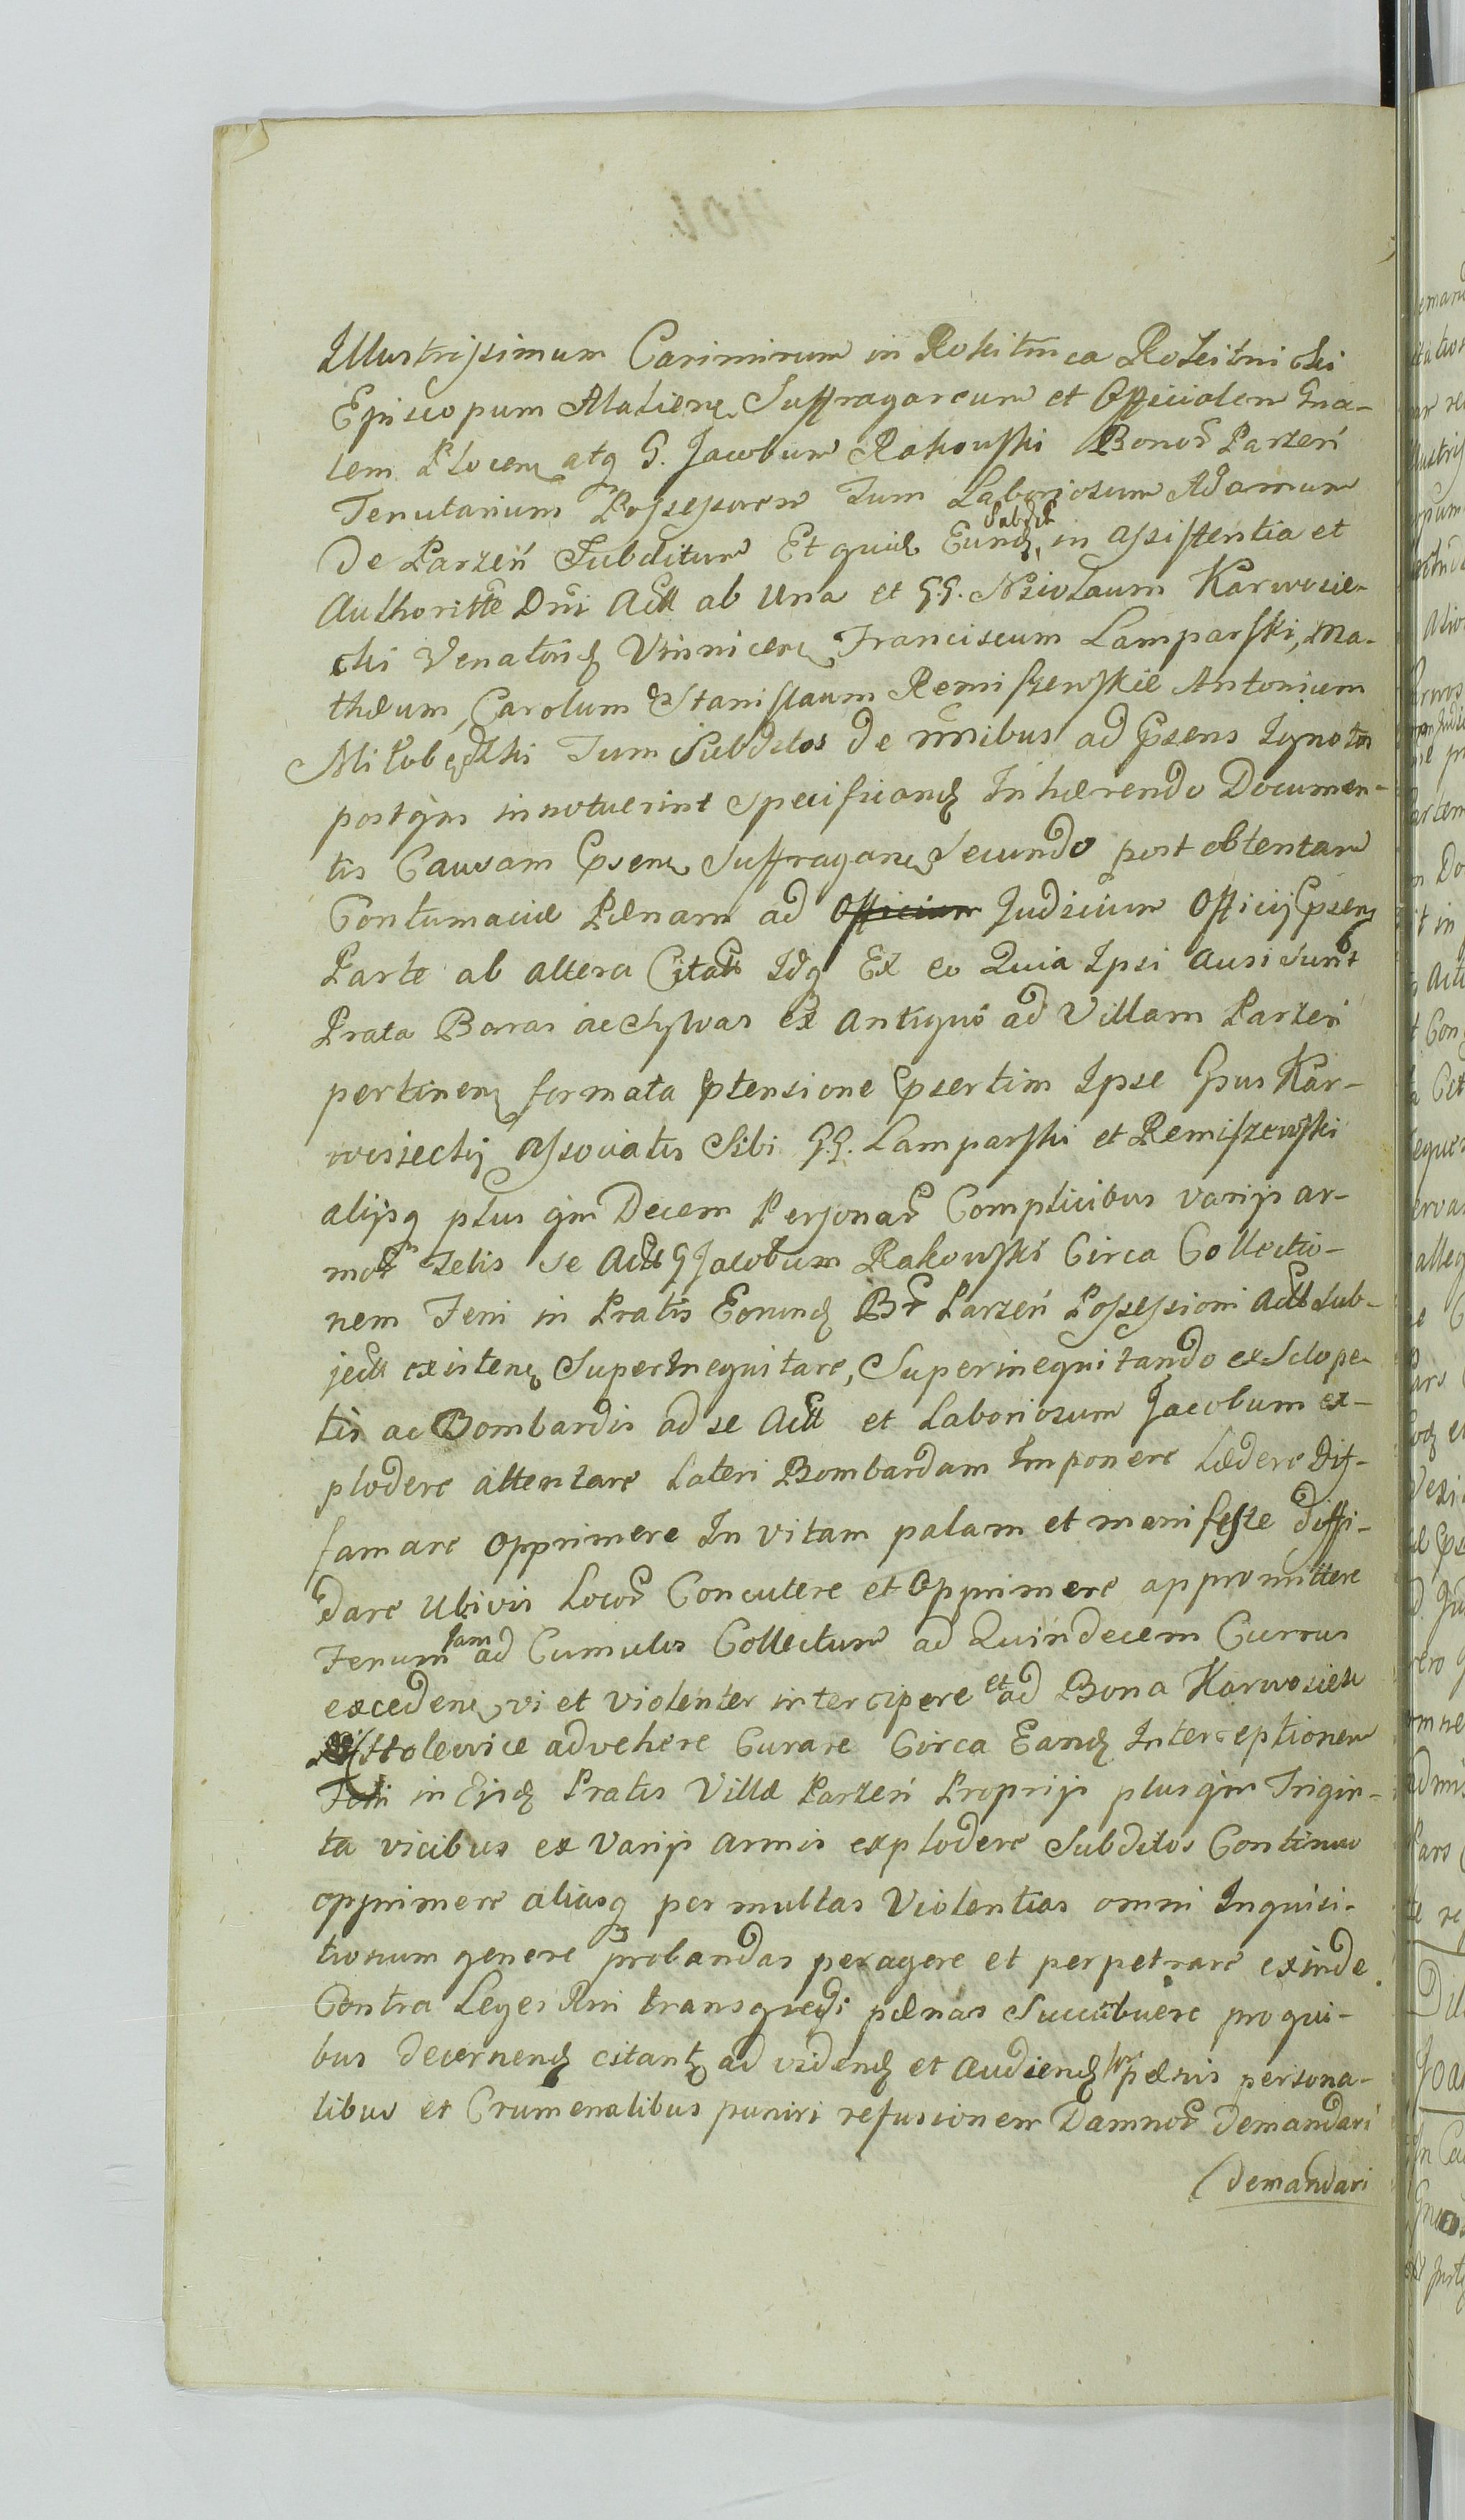 Illustrissimum Casimirum in Rokitnica Rokitnicki
Episcopum Alatiens Suffraganeum et Officialem Gna-
lem Plocens atq G. Jacobum Rakowski Bonor Parzeń
Tenutarium Possessorem Tum Laboriosum Adamum
De Parzeń Subditum Et quid Eund Subdit in assistentia et
Authoritte Dni Act ab Una et GG. Nicolaum Karwosie-
cki Venatorid Vinnicens Franciscum Lamparski, Ma-
theum, Carolum Stanislaum Remiszewskie Antonium
Miłobędzki Tum Subditos de nnibus ad Psens Ignotos
postqm innotuerint specificand Inhærendo Documen-
tis Causam Psens Suffragans Secundo post obtentam
Contumaciæ Pænam ad Officium Judicium Officij Psens
Parte ab altera Citatos Idq Ex eo Quia Ipsi Ausi sunt
Prata Borras ac Sylvas ex Antiquo ad Villam Parzeń
pertinens formata Ptensione Psertim Ipse Gsus Kar-
wosiecki Associatis Sibi GG. Lamparski et Remiszewski
alijsq plus qm Decem Personar Complicibus varijs ar-
mor Telis se Act G Jacobum Rakowski Circa Collectio-
nem Feni in Pratis Eorund Br Parzeń Possessioni Act Sub-
ject existens SuperInequitare, Superinequitando ex Sclope-
tis ac Bombardis ad se Act et Laboriosum Jacobum ex-
plodere attentare Lateri Bombardam Imponere Lædere Dif-
famare Opprimere In vitam palam et manifeste diffi-
dare Ubivis Locor Concutere et Opprimere appromittere
Fenum jam ad Cumulos Collectum ad Quindecem Currus
excedens vi et violenter intercipere et ad Bona Karwosieki
Cholewice advehere Curare Circa Eand Interceptionem
Feni in Ejsd Pratis Villæ Parzeń Proprijs plusqm Trigin-
ta vicibus ex Varijs armis explodere Subditos Continuo
opprimere aliasq per multas Violentias omni Inquisi-
tionum genere probandas peragere et perpetrare exinde
Contra Leges Rni transgredi pænas Succubuere pro qui-
bus decernend citant ad vidend et Audiend se pænis persona-
libus et Crumenalibus puniri refusionem Damnor demandari
demandari